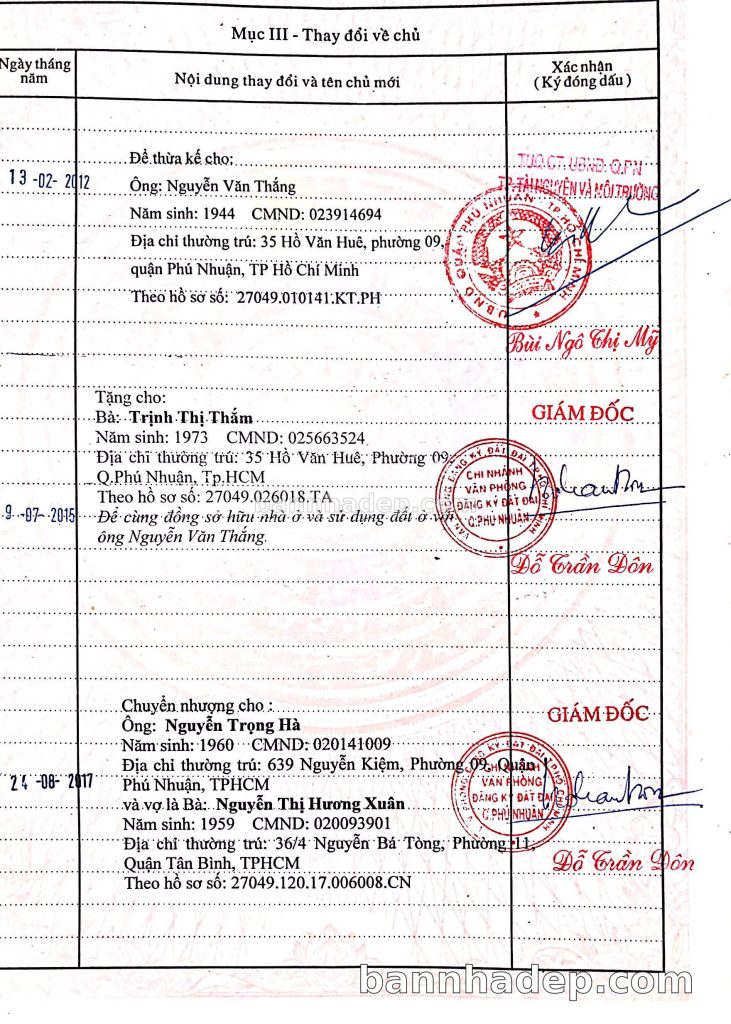 Mục III - Thay đổi về chủ
Ngày tháng
năm
Nội dung thay đổi và tên chủ mới
Xác nhận
( Ký đóng dấu )
13 -02- 2012
Để thừa kế cho:
Ông: Nguyễn Văn Thắng
Năm sinh: 1944 CMND: 023914694
Địa chỉ thường trú: 35 Hồ Văn Huê, phường 09,
quận Phú Nhuận, TP Hồ Chí Minh
Theo hồ sơ số: 27049.010141.KT.PH
TUQ.CT. UBND. Q.PN
TP.TÀI NGUYÊN VÀ MÔI TRƯỜNG
U.B.N.D QUẬN PHÚ NHUẬN T.P HỒ CHÍ MINH
Bùi Ngô Thị Mỹ
9 -07- 2015
Tặng cho:
Bà: Trịnh Thị Thắm
Năm sinh: 1973 CMND: 025663524
Địa chỉ thường trú: 35 Hồ Văn Huê, Phường 09
Q.Phú Nhuận, Tp.HCM
Theo hồ sơ số: 27049.026018.TA
Để cùng đồng sở hữu nhà ở và sử dụng đất ở với
ông Nguyễn Văn Thắng.
GIÁM ĐỐC
VĂN PHÒNG ĐĂNG KÝ ĐẤT ĐAI T.P HỒ CHÍ MINH
CHI NHÁNH
VĂN PHÒNG
ĐĂNG KÝ ĐẤT ĐAI
Q.PHÚ NHUẬN
Đỗ Trần Đôn
bannhadep.com
24 -08- 2017
Chuyển nhượng cho :
Ông: Nguyễn Trọng Hà
Năm sinh: 1960 CMND: 020141009
Địa chỉ thường trú: 639 Nguyễn Kiệm, Phường 09, Quận
Phú Nhuận, TPHCM
và vợ là Bà: Nguyễn Thị Hương Xuân
Năm sinh: 1959 CMND: 020093901
Địa chỉ thường trú: 36/4 Nguyễn Bá Tòng, Phường 11,
Quận Tân Bình, TPHCM
Theo hồ sơ số: 27049.120.17.006008.CN
GIÁM ĐỐC
VĂN PHÒNG ĐĂNG KÝ ĐẤT ĐAI T.P HỒ CHÍ MINH
CHI NHÁNH
VĂN PHÒNG
ĐĂNG KÝ ĐẤT ĐAI
Q.PHÚ NHUẬN
Đỗ Trần Đôn
bannhadep.com